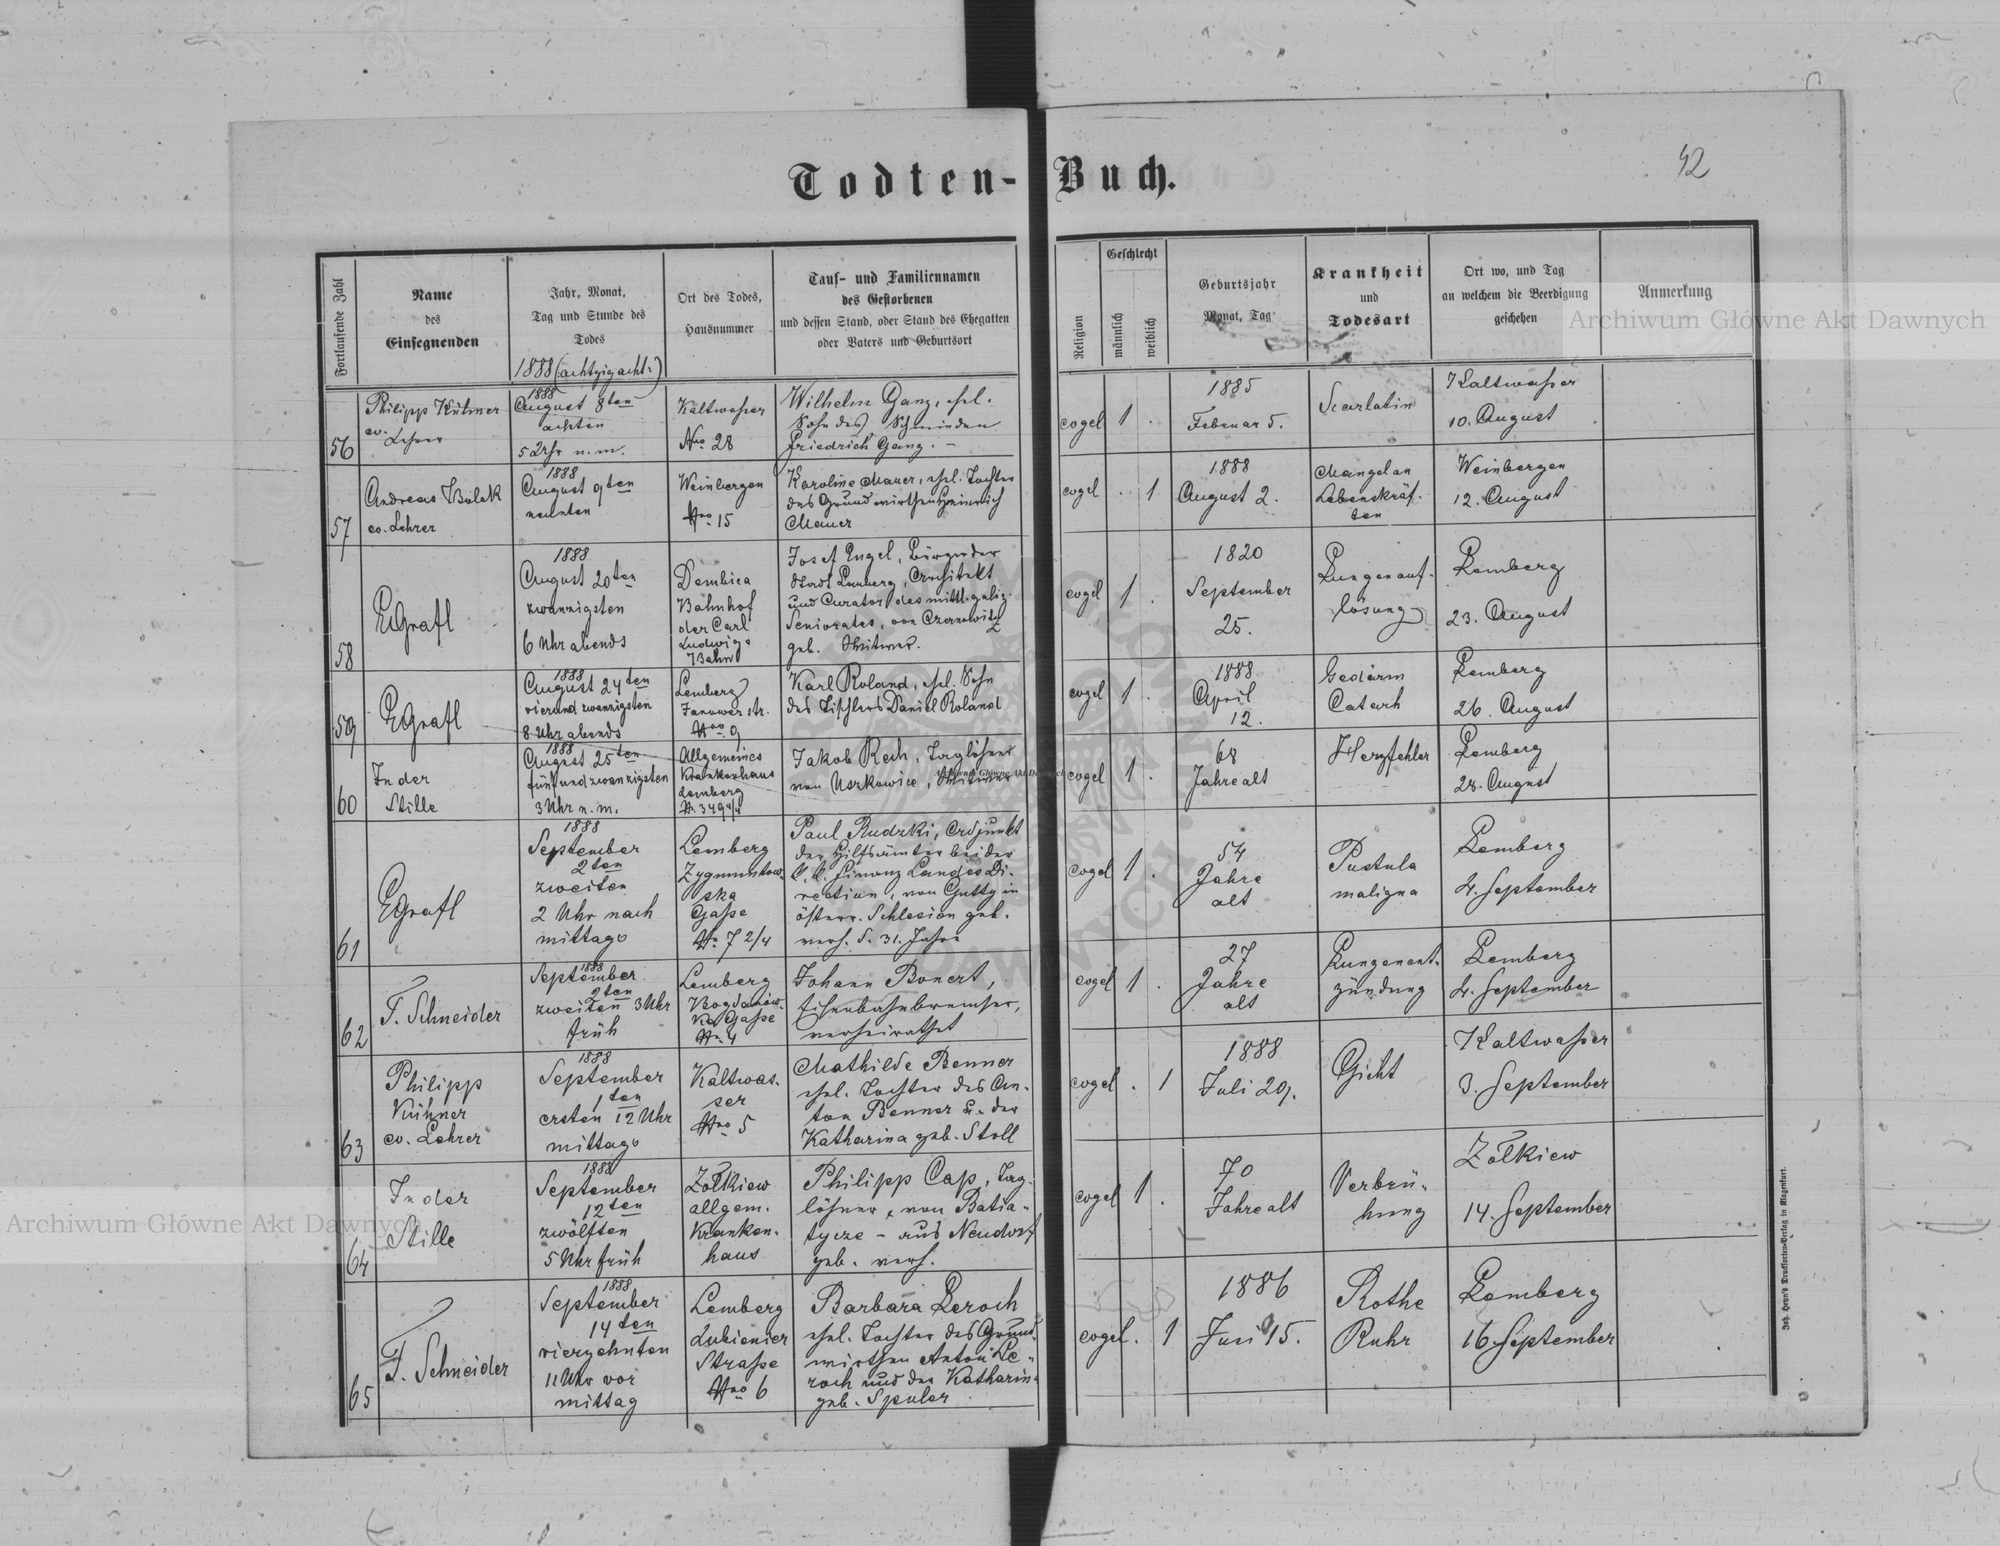 Todten-Buch.
42
Fortlaufende Zahl
Name
des
Einsegnenden
Jahr, Monat,
Tag und Stunde des
Todes
1888 (achtzigacht)
Ort des Todes,
Hausnummer
Tauf- und Familiennamen
des Gestorbenen
und dessen Stand, oder Stand des Ehegatten
oder Vaters und Geburtsort
Religion
Geschlecht
männlich
weiblich
Geburtsjahr
Monat, Tag
Krankheit
und
Todesart
Ort wo, und Tag
an welchem die Beerdigung
geschehen
Anmerkung
56
Philipp Kühner
ev. Lehrer
1888
August 8ten
achten
5 Uhr n. m.
Kaltwasser
Nro 28
Wilhelm Ganz, ehel.
Sohn des Schmieden
Friedrich Ganz. –
evgel
1 .
1885
Februar 5.
Scarlatin
Kaltwasser
10. August
57
Andreas Bolek
ev. Lehrer
1888
August 9ten
neunten
Weinbergen
Nro 15
Karoline Mauer, ehel. Tochter
des Grundwirthen Heinrich
Mauer
evgel
. 1
1888
August 2.
Mangel an
Lebenskräf-
ten
Weinbergen
12. August
58
EGrafl
1888
August 20ten
zwanzigsten
6 Uhr abends
Dembica
Bahnhof
der Carl
Ludwigs
Bahn
Josef Engel, Bürger der
Stadt Lemberg, Architekt
und Curator des mittl. galiz.
Seniorates, von Czernowitz
geb. Witwer.
evgel
1 .
1820
September
25.
Lungenauf-
lösung
Lemberg
23. August
59
EGrafl
1888
August 24ten
vierundzwanzigsten
8 Uhr abends
Lemberg
Janower str.
Nro 9
Karl Roland, ehel. Sohn
des Tischlers Daniel Roland
evgel
1 .
1888
April
12.
Gedärm
Catarh
Lemberg
26. August
60
In der
Stille
1888
August 25ten
fünfundzwanzigsten
3 Uhr n. m.
Allgemeines
Krankenhaus
Lemberg
N. 349 4/4
Jakob Rech, Taglöhner
von Uszkowice, Witwer
evgel
1 .
68
Jahre alt
Herzfehler
Lemberg
28. August
61
EGrafl
1888
September
2ten
zweiten
2 Uhr nach
mittags
Lemberg
Zygmuntow-
ska
Gasse
N. 7 2/4
Paul Rudzki, Adjunkt
der Hilfsämter bei der
k. k. Finanz Landes Di-
rection, von Gutty in
österr. Schlesien geb.
verh. s. 31. Jahre
evgel
1 .
54
Jahre
alt
Pustula
maligna
Lemberg
4. September
62
F. Schneider
1888
September
2ten
zweiten 3 Uhr
früh
Lemberg
Bogdanow-
ka Gasse
N. 4
Johann Bonert,
Eisenbahnbremser,
verheirathet
evgel
1 .
27
Jahre
alt
Lungenent-
zündung
Lemberg
4. September
63
Philipp
Kühner
ev. Lehrer
1888
September
1ten
ersten 12 Uhr
mittags
Kaltwas-
ser
Nro 5
Mathilde Benner
ehel. Tochter des An-
ton Benner u. der
Katharina geb. Stoll
evgel
. 1
1888
Juli 29.
Gicht
Kaltwasser
3. September
64
In der
Stille
1888
September
12ten
zwölften
5 Uhr früh
Żółkiew
allgem.
Kranken-
haus
Philipp Cap, Tag-
löhner, von Batia-
tycze – aus Neudorf
geb. verh.
evgel
1 .
70
Jahre alt
Verbrü-
hung
Żółkiew
14. September
65
F. Schneider
1888
September
14ten
vierzehnten
11 Uhr vor
mittag
Lemberg
Lubienier
Strasse
Nro 6
Barbara Leroch
ehel. Tochter des Grund-
wirthen Anton Le-
roch und der Katharina
geb. Spuler
evgel
. 1
1886
Juni 15.
Rothe
Ruhr
Lemberg
16. September
Archiwum Główne Akt Dawnych
Archiwum Główne Akt Dawnych
Archiwum Główne Akt Dawnych
Joh. Leon's Drucksorten-Verlag in Klagenfurt.